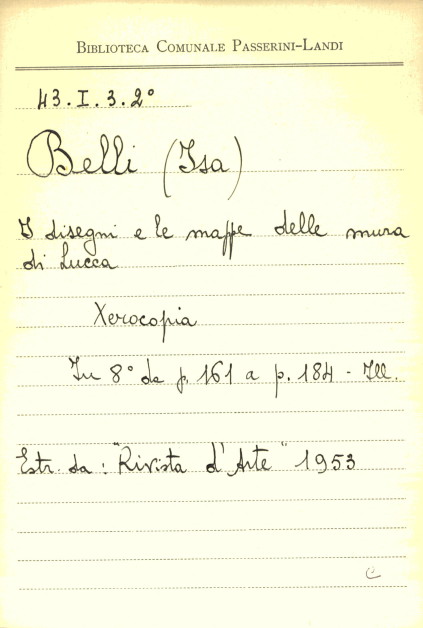 BIBLIOTECA COMUNALE PASSERINI-LANDI
43.I.3.2°
Belli (Isa)
I disegni e le mappe delle mura
di Lucca
Xerocopia
In 8° da p. 161 a p. 184 - Ill.
Estr. da: "Rivista d'Arte" 1953
C